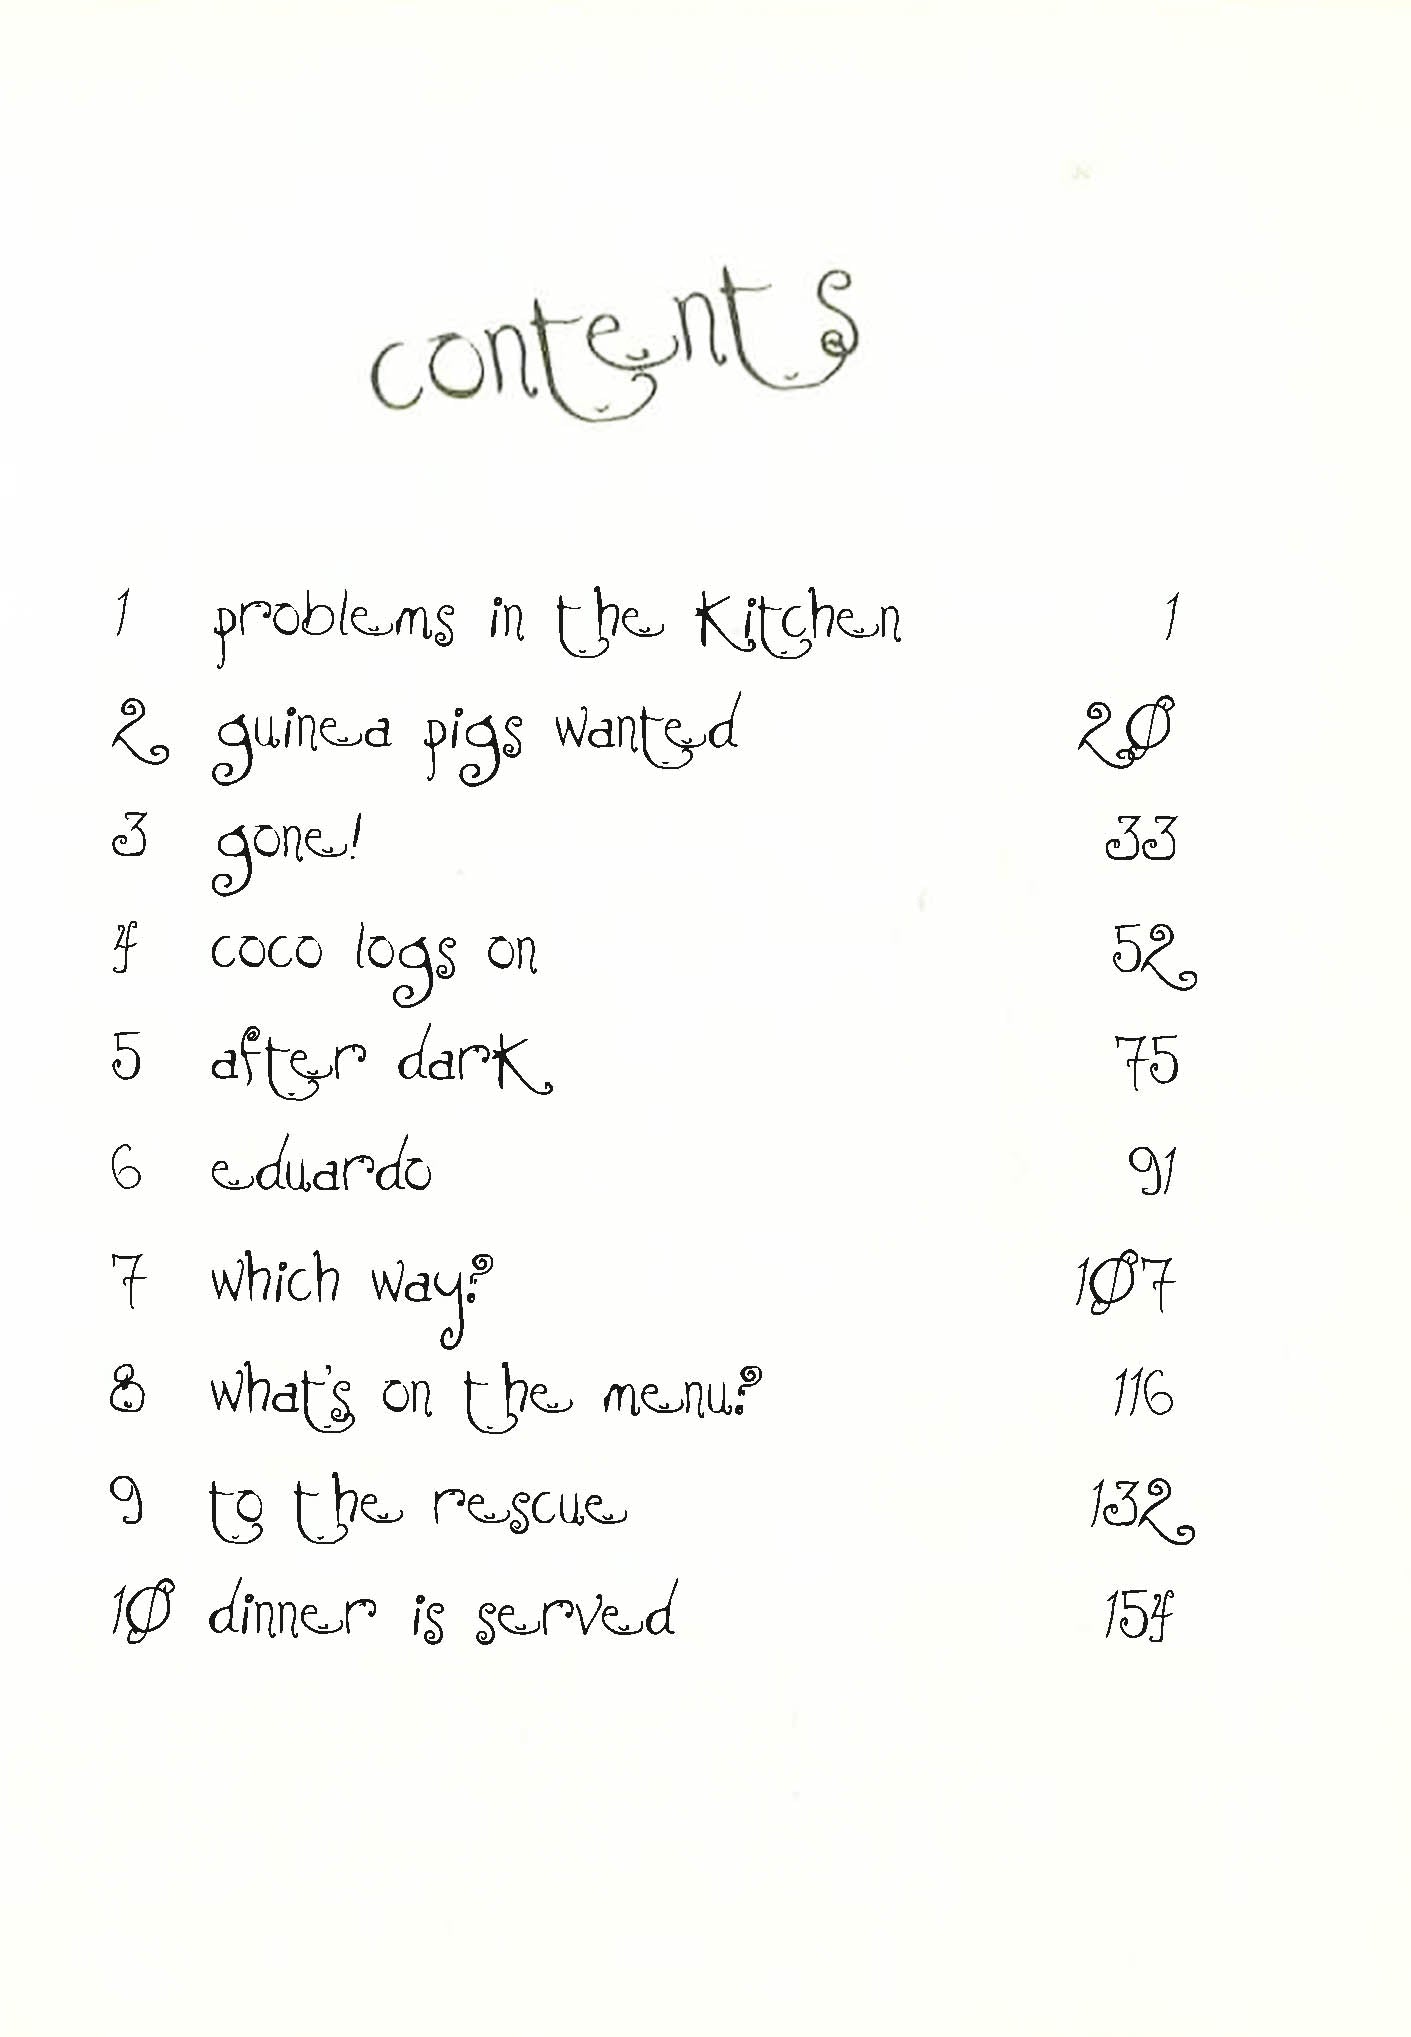 contents
1 problems in the kitchen 1
2 guinea pigs wanted 20
3 gone! 33
4 coco logs on 52
5 after dark 75
6 eduardo 91
7 which way? 107
8 what's on the menu? 116
9 to the rescue 132
10 dinner is served 154